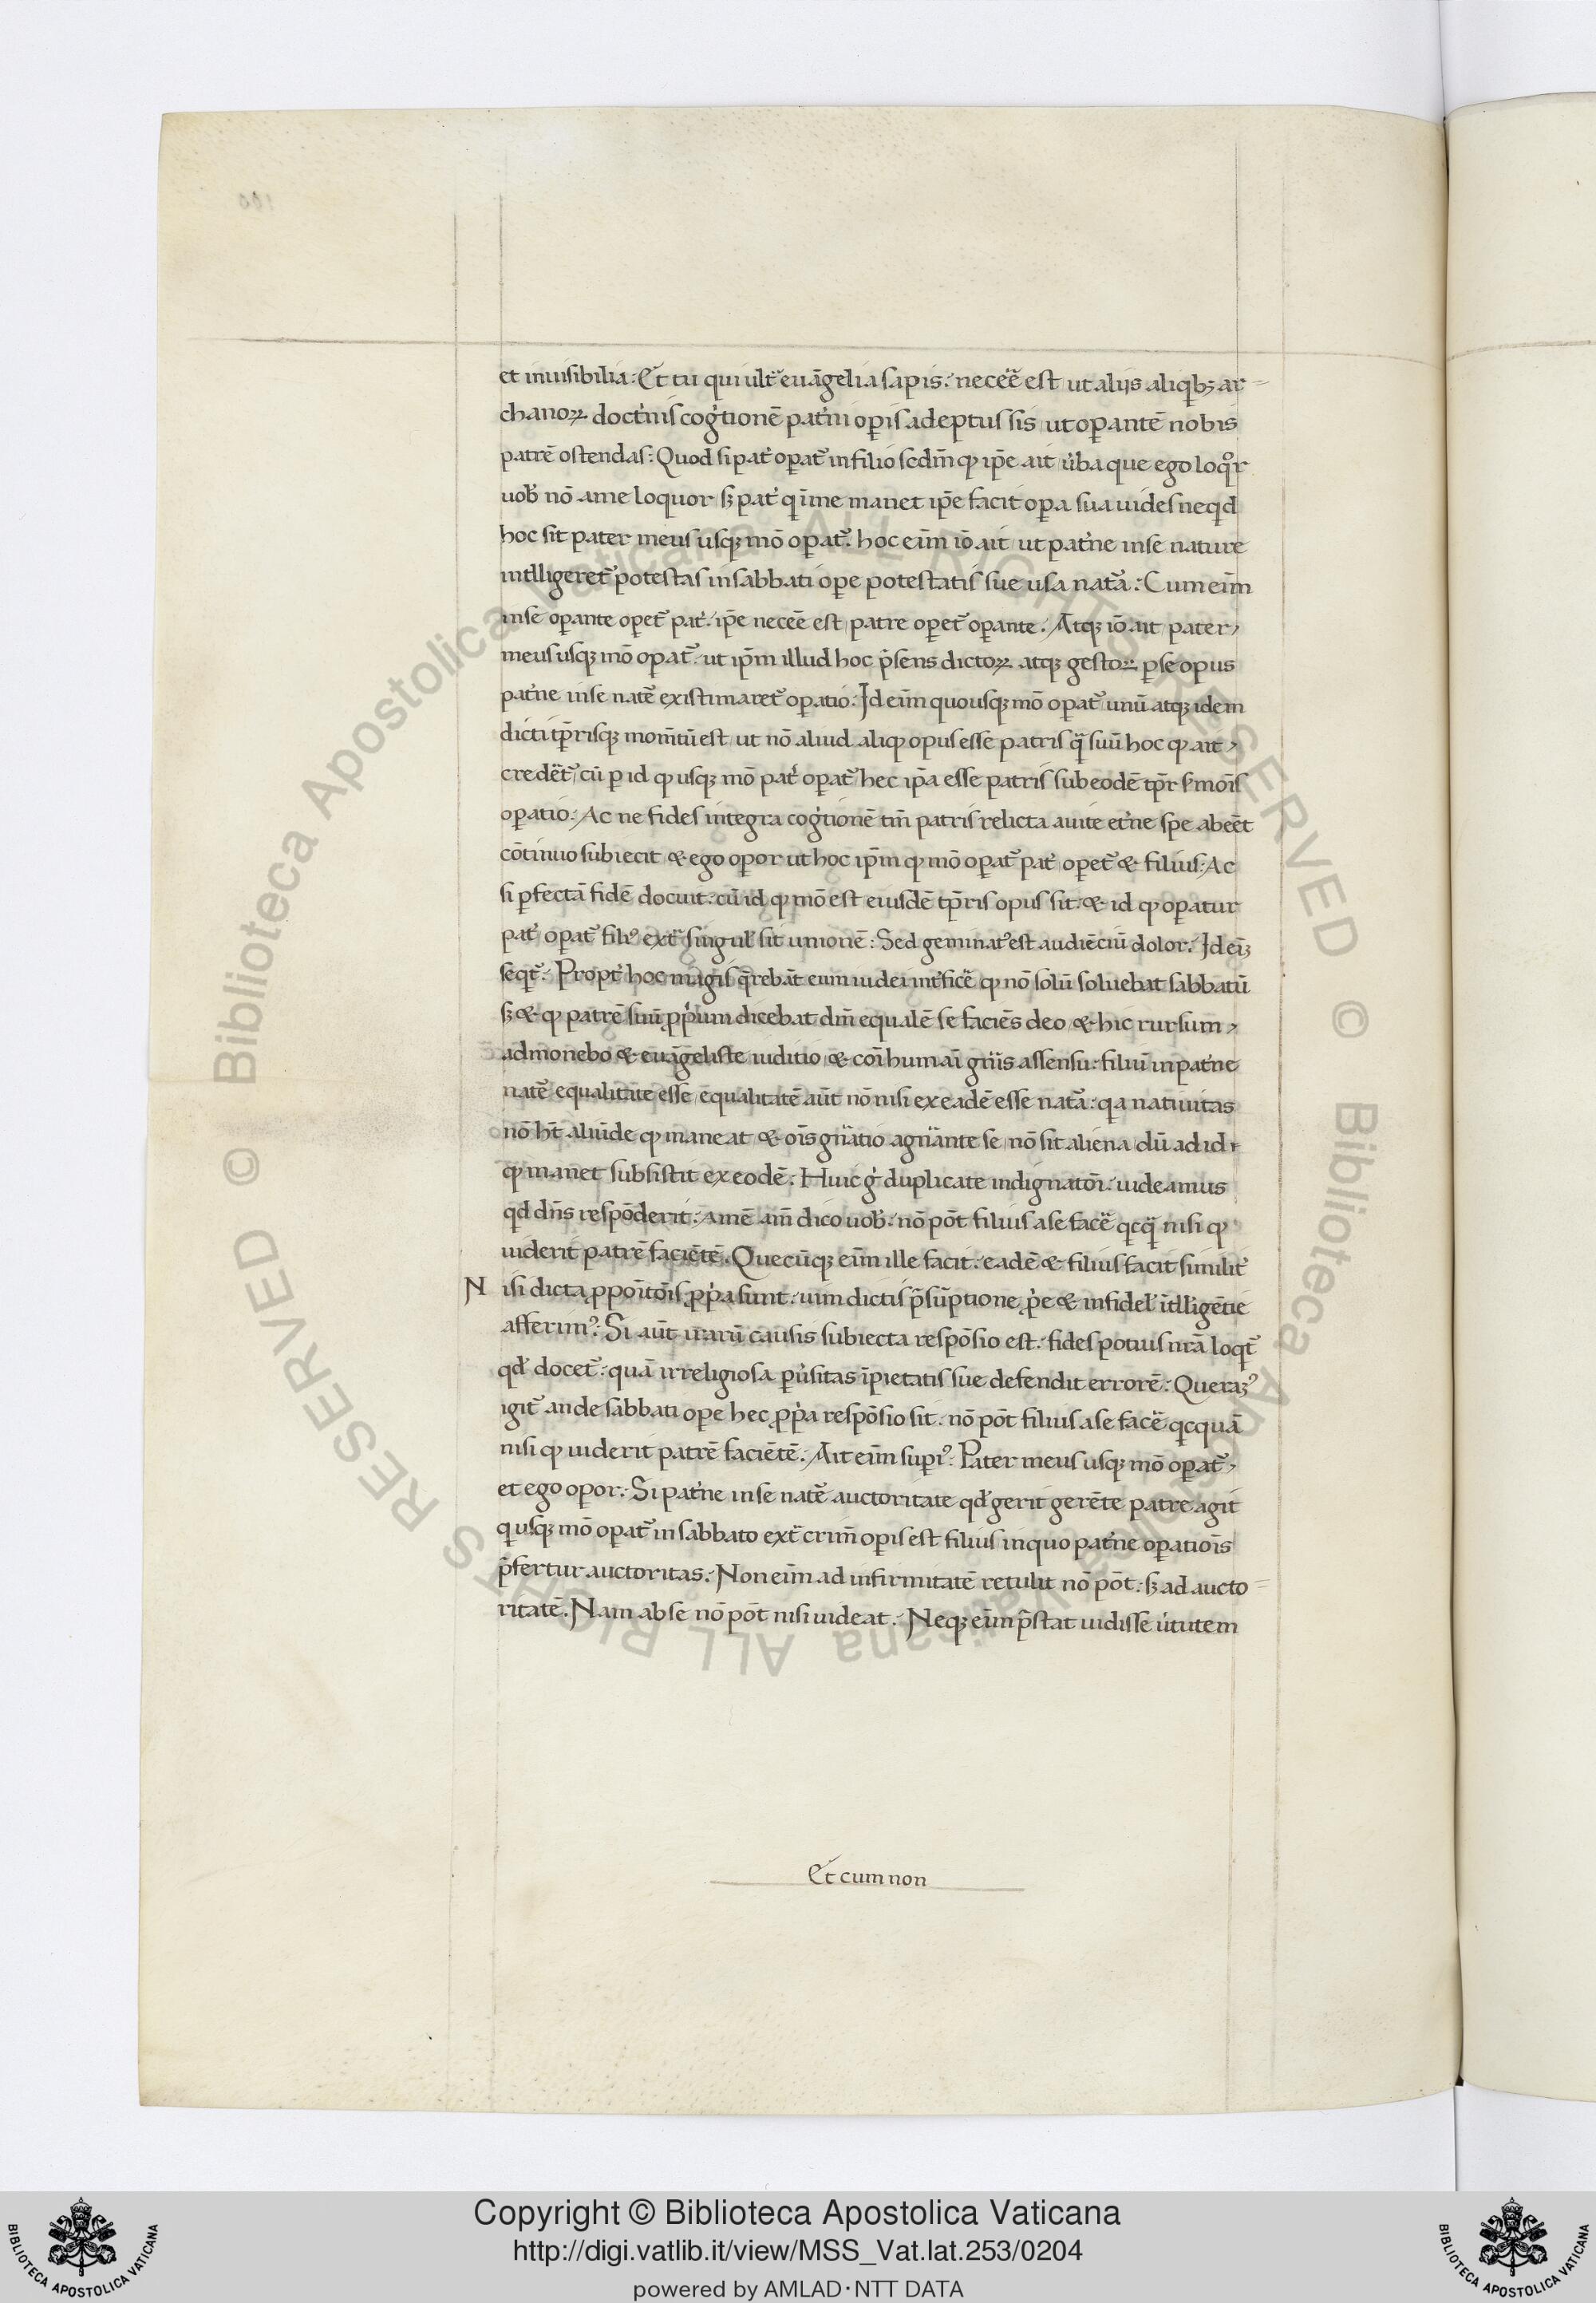 et inuisibilia: Et tu qui ult᷑ euāgelia sapis: necēe est ut alijs aliqbꝫ ar=
chanoꝝ doct'nis cog'tionē pat'ni oꝑis adeptus sis ut oꝑantē nobis
patrē ostendas: Quod si pat' oꝑat᷑ in filio sedm̄ ꝙ ip̄e ait u'ba que ego loqᵒr
uob' nō a me loquor sꝫ pat' q in me manet ip̄e facit oꝑa sua uides ne qd
hoc sit pater meus usqꝫ mō oꝑat᷑. hoc eim̄ iō ait ut pat'ne in se nature
intelligeret᷑ potestas in sabbati oꝑe potestatis sue usa nat᷑a: Cum eim̄
in se oꝑante oꝑet᷑ pat': ip̄e necēe est patre oꝑet᷑ oꝑante. Atqꝫ iō ait pater
meus usqꝫ mō oꝑat᷑: ut ip̄m illud hoc p̄sens dictoꝝ atqꝫ gestoꝝ ꝑ se opus
pat'ne in se nat᷑e existimaret᷑ oꝑatio: Id eim̄ quousqꝫ mō oꝑat᷑ unū atqꝫ idem
dicti tp̄risqꝫ mom̄tū est ut nō aliud aliqꝙ opus esse patris q̄ suū hoc ꝙ ait
credēt᷑ cū ꝑ id ꝙ usqꝫ mō pat' oꝑat᷑ hec ip̄a esse patris sub eodē tp̄r s'mōis
oꝑatio: Ac ne fides integra cog'tionē tm̄ patris relicta a uite et'ne spe abeēt
cōtinuo subiecit & ego oꝑor ut hoc ip̄m ꝙ mō oꝑat᷑ pat' oꝑet᷑ & filius: Ac
si ꝑfectā fidē docuit: cū id ꝙ mō est eiusdē tp̄ris opus sit: & id ꝙ oꝑatur
pat' oꝑat᷑ filiꝰ ext᷑ singul' sit unionē: Sed geminatꝰ est audiēciū dolor: Id eiꝫ
seqt᷑: Propt' hoc magis q̄rebāt eum iudei int'ficē ꝙ nō solū soluebat sabbatū
sꝫ & ꝙ patrē suū ꝓp'um dicebat dm̄ equalē se faciēs deo & hic rursum
admonebo & euāgeliste iuditio & cōi humai gn̄is assensu: filiū in pat'ne
nat᷑e equalitate esse equalitatē aūt nō nisi ex eadē esse nat᷑a: qa natiuitas
nō ht̄ aliūde ꝙ maneat & oīs gn̄atio a gn̄ante se nō sit aliena dū ad id
ꝙ manet subsistit ex eodē: Huic g' duplicate indignatōi: uideamus
qd dn̄s respōderit: Amē am̄ dico uob': nō pōt filius a se facē qcq̄ nisi ꝙ
uiderit patrē faciētē: Quecūqꝫ eim̄ ille facit: eadē & filius facit similit'
N isi dicta ꝓpoītōis ꝓp'a sunt: uim dictis p̄sūptione ꝓp'e & infidel' ītll'igētie
afferimꝰ: Si aūt iraꝝ causis subiecta respōsio est: fides potius nr̄a loqt᷑
qd' docet᷑: quā irreligiosa ꝑu'sitas īpietatis sue defendit errorē: Queramꝰ
igit᷑ an de sabbati oꝑe hec ꝓp'a respōsio sit: nō pōt filius a se facē qcquā
nisi ꝙ uiderit patrē faciētē: Ait eim̄ supiꝰ: Pater meus usqꝫ mō oꝑat᷑
et ego oꝑor: Si pat'ne in se nat᷑e auctoritate qd' gerit gerēte patre agit
q usqꝫ mō oꝑat᷑ in sabbato ext᷑ crim̄ oꝑis est filius in quo pat'ne oꝑatiōis
p̄fertur auctoritas: Non eim̄ ad infirmitatē retulit nō pōt: sꝫ ad aucto=
ritatē. Nam ab se nō pōt nisi uideat: Neqꝫ eim̄ p̄stat uidisse u'tutem
Et cum non
Copyright © Biblioteca Apostolica Vaticana
http://digi.vatlib.it/view/MSS_Vat.lat.253/0204
powered by AMLAD·NTT DATA